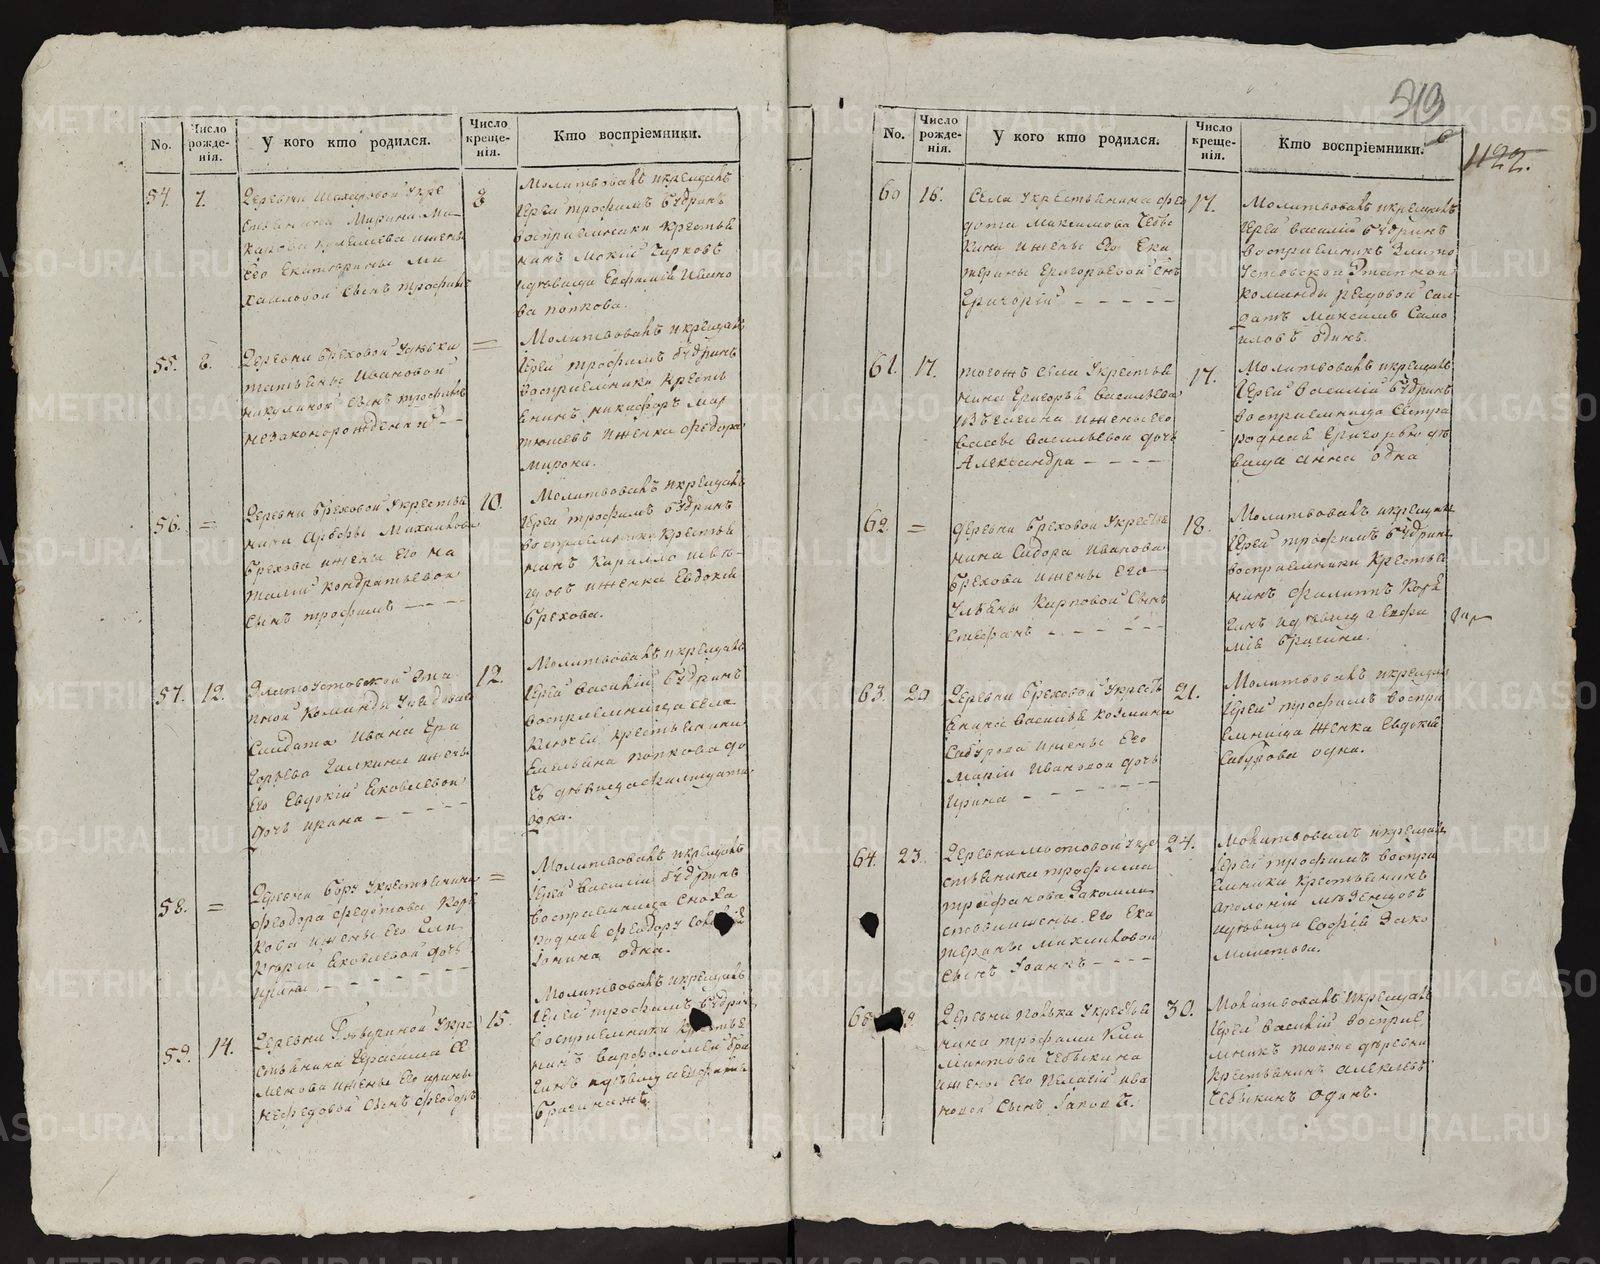 No.
Число рожде-нія.
У кого кто родился.
Число креще-нія.
Кто воспріемники.
54. 7.
Деревни Шахаровой Укре
стьянина Марина Ма-
карова ижены
его Екатерины Ми
хаиловой Сынъ трофимъ
8
Молитвовалъ икрещалъ
Іерей трофимъ Будринъ
восприемники крестья
нинъ Мокий Чирковъ
идѣвица Евфимія Ивано
ва попкова.
55. 8.
Деревни Бреховой Удѣвки
татьяны Ивановой
никулиной Сынъ трофимъ
незаконорожденный
=
Молитвовалъ икрещалъ
Іерей трофимъ Будринъ
восприемники кресть
янинъ никифоръ Мар
тюшевъ ижёнка федора
Мирона.
56. =
Деревни Бреховой Укрестья
нина Арефы Михаилова
Брехова ижены Его На
талии кондратьевой
сынъ трофимъ
10.
Молитвовалъ икрещалъ
Іерей трофимъ Будринъ
восприемники крестья
нинъ Кирилло
ижёнка Евдокия
Брехова.
57. 12.
Златоустовской Эта
пной команды Урядоваго
Солдата Ивана Гри
горьева Галкина ижены
Его Евдокіи Яковлевой
дочь ирина
12.
Молитвовалъ икрещалъ
Іерей Василій Будринъ
восприемница села
Ключей крестьянина
Емельяна попкова до
чь дѣвица Филицата
одна.
58. =
Деревни Бору Укрестьянина
феодора федотова Коря
кова ижены Его Гли
керіи Яковлевой дочь
ирина
=
Молитвовалъ икрещалъ
Іерей Василій Будринъ
восприемница Сноха
родная феодору
Іонина одна.
59. 14.
Деревни Укре
стьянина Герасима Се
менова ижены Его ирины
Нефедовой Сынъ феодоръ
15.
Молитвовалъ икрещалъ
Іерей трофимъ Будринъ
восприемники крестья
нинъ Варфоломей Бра
гинъ идѣвица
Брагина
519
1122.
No.
Число рожде-нія.
У кого кто родился.
Число креще-нія.
Кто воспріемники.
60 16.
Села Укрестьянина фео
дота Максимова Чебы
кина ижены Его Ека
терины Григорьевой Сынъ
Григорій
17.
Молитвовалъ икрещалъ
Іерей Василій Будринъ
восприемникъ Злато
Устовской Этапной
команды рядовой Сал-
датъ Максимъ Само
иловъ одинъ.
61. 17.
тогожъ Села Укрестья
нина Григорья Васильева
ижены Его
Васильевой дочь
Александра
17.
Молитвовалъ икрещалъ
Іерей Василий Будринъ
восприемница Сестра
родная Григорью дѣ
вица анна одна
62. =
Деревни Бреховой Укрестья
нина Сидора Иванова
Брехова ижены Его
Ульяны Карповой Сынъ
Стефанъ
18.
Молитвовалъ икрещалъ
Іерей трофимъ Будринъ
восприемники крестья
нинъ Филипъ Коря
гинъ идѣвица Евфи
мія Брагина.
63. 20
Деревни Бреховой Укресть
янина Василья козмина
Сабурова ижены Его
Маріи Ивановой дочь
Ирина
21.
Молитвовалъ икрещалъ
Іерей трофимъ воспри
емница жёнка Евдокия
Сабурова одна.
64. 23.
Деревни Мостовой Укре
стьянина трофима
трифанова Закомал
стова ижены Его Ека
терины Михаиловой
Сынъ Іоаннъ
24.
Молитвовалъ икрещалъ
Іерей трофимъ воспри
емники крестьянинъ
аполоній Мѣзенцовъ
идѣвица Софія Зако
малстова.
65
Деревни попька Укрестья
нина трофима Кли
мантова Чебыкина
ижены Его Пелагіи ива
новой Сынъ Іаковъ.
30.
Молитвовалъ икрещалъ
Іерей Василій восприе
мникъ тоиже деревни
крестьянинъ алексѣй
Чебыкинъ одинъ.